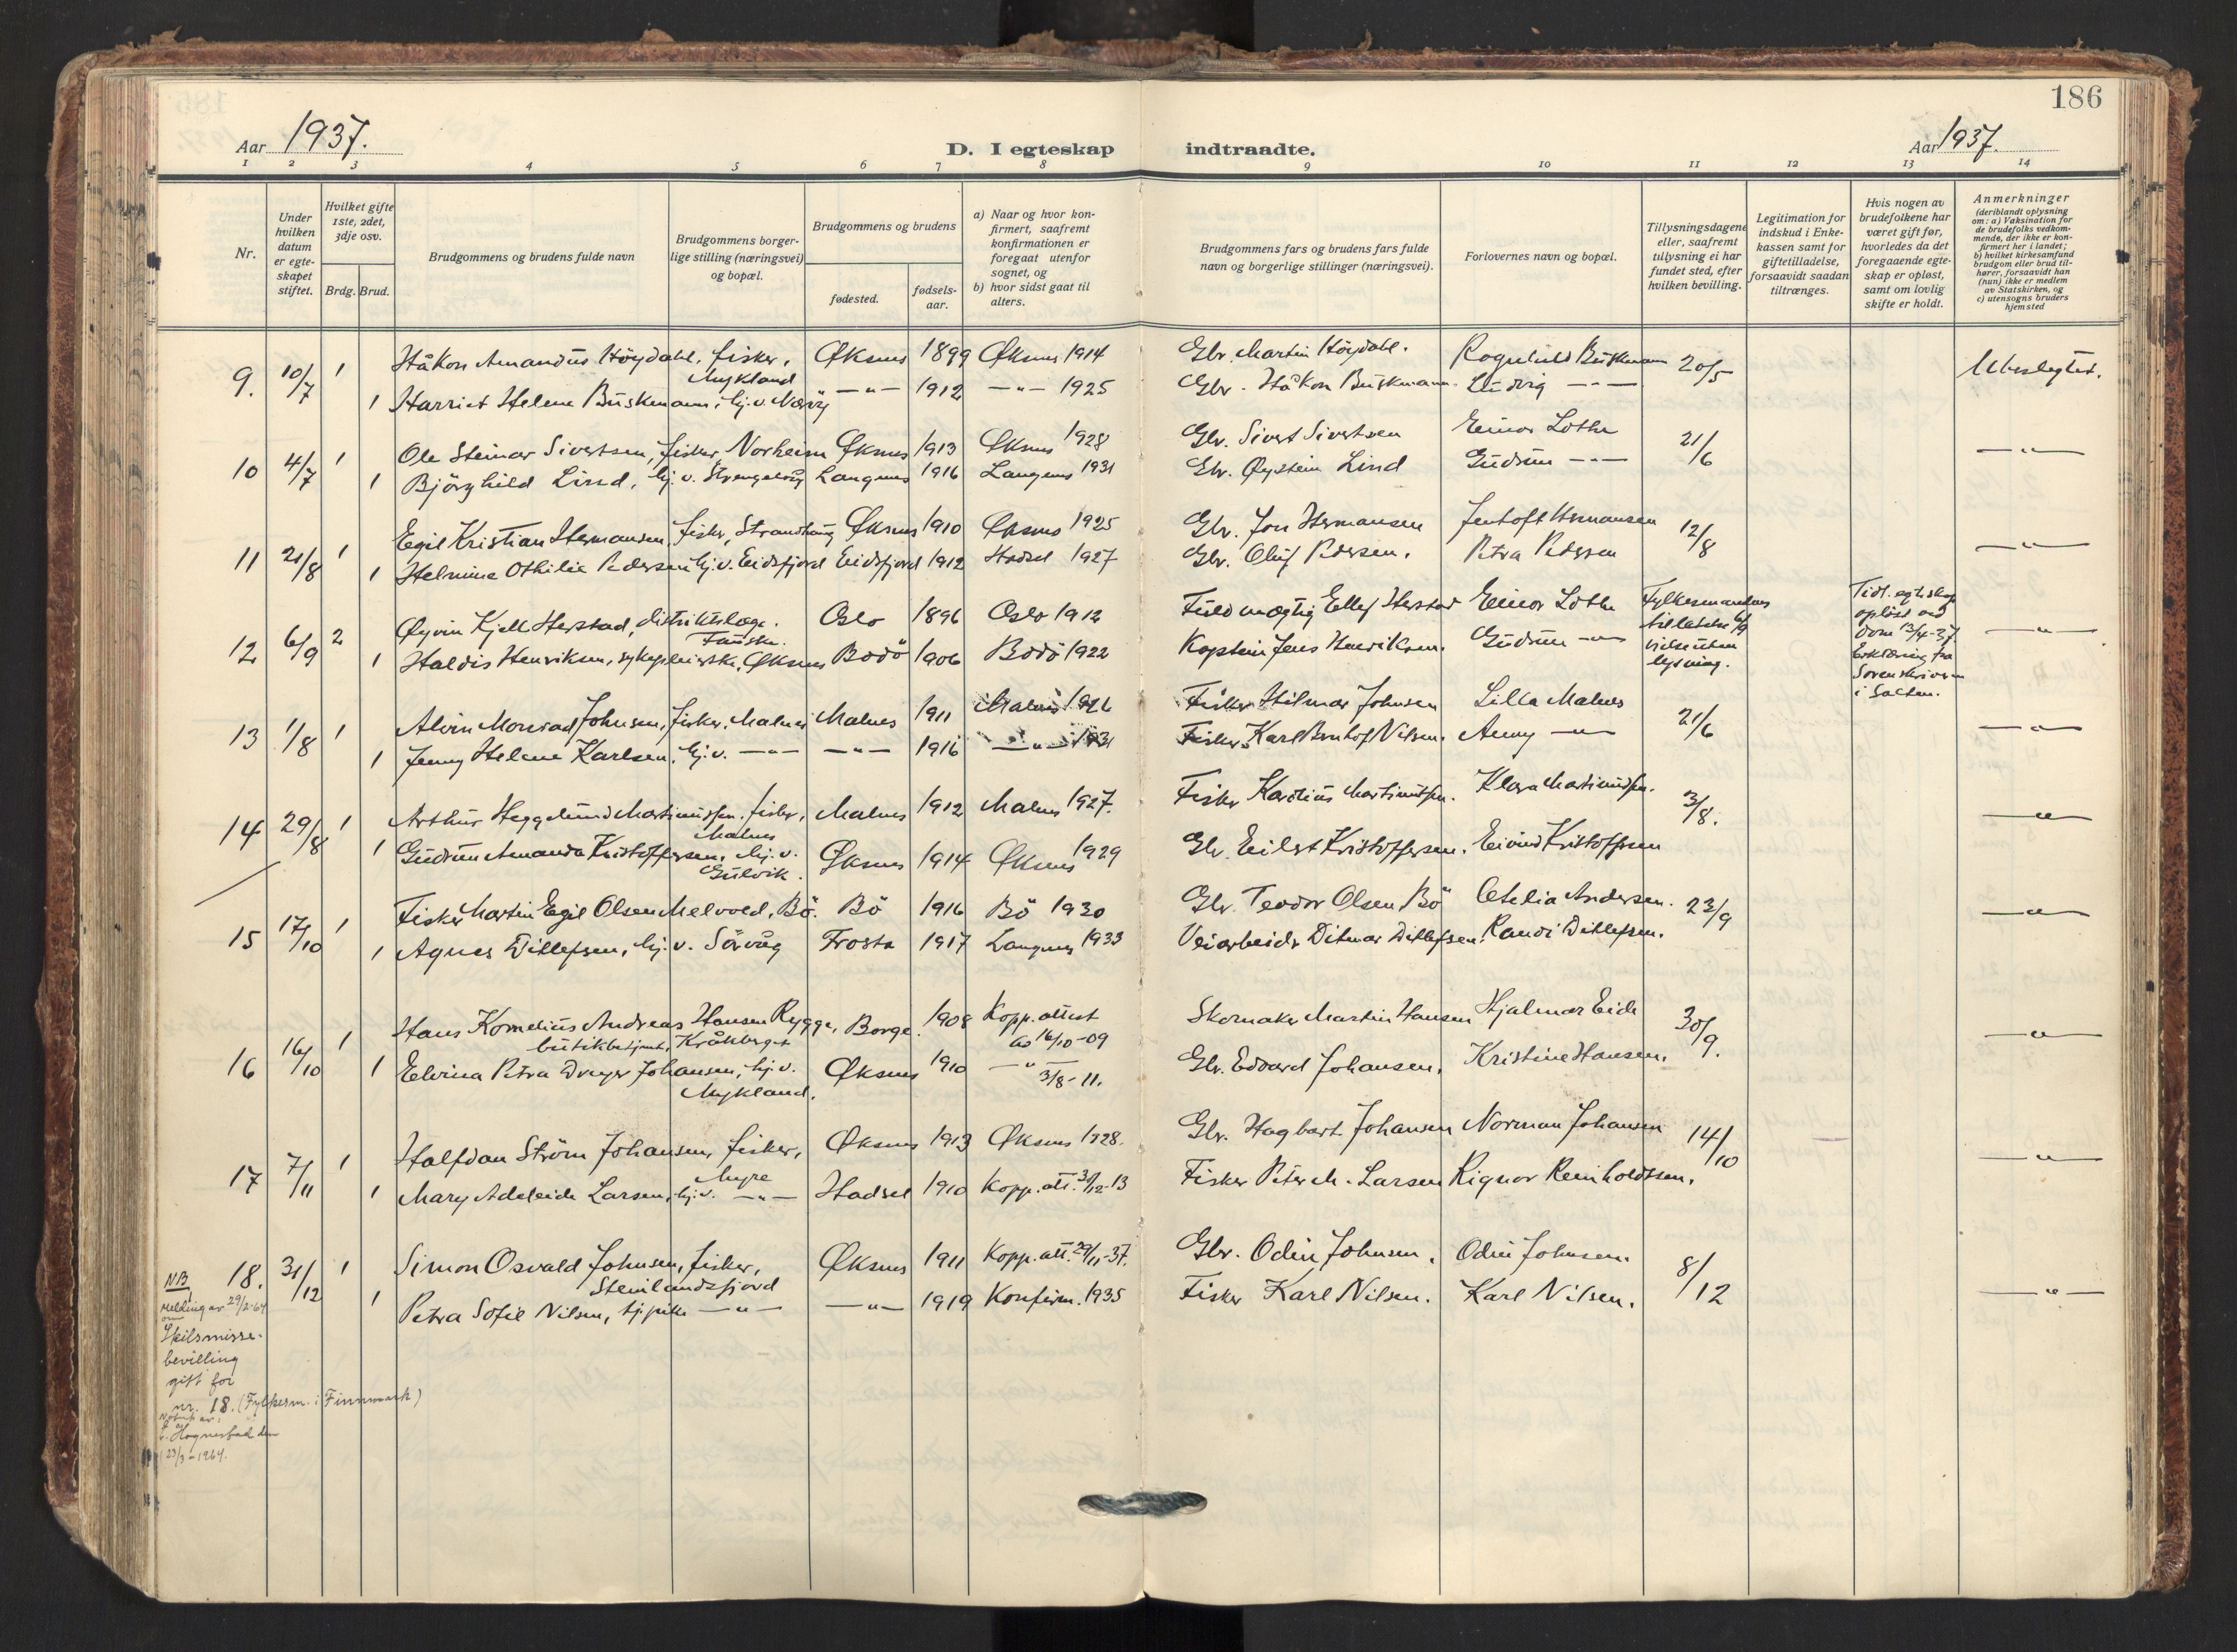 186
Aar 1937.
D. I egteskap indtraadte.
Aar 1937.
1 2 3 4 5 6 7 8 9 10 11 12 13 14
Nr.
Under hvilken datum er egteskapet stiftet.
Hvilket gifte 1ste, 2det, 3dje osv.
Brdg. Brud.
Brudgommens og brudens fulde navn
Brudgommens borgerlige stilling (næringsvei) og bopæl.
Brudgommens og brudens
fødested.
fødselsaar.
a) Naar og hvor konfirmert, saafremt konfirmationen er foregaat utenfor sognet, og
b) hvor sidst gaat til alters.
Brudgommens fars og brudens fars fulde navn og borgerlige stillinger (næringsvei).
Forlovernes navn og bopæl.
Tillysningsdagene eller, saafremt tillysning ei har fundet sted, efter hvilken bevilling.
Legitimation for indskud i Enkekassen samt for giftetilladelse, forsaavidt saadan tiltrænges.
Hvis nogen av brudefolkene har været gift før, hvorledes da det foregaaende egteskap er opløst, samt om lovlig skifte er holdt.
Anmerkninger
(deriblandt oplysning om: a) Vaksination for de brudefolks vedkommende, der ikke er konfirmert her i landet; b) hvilket kirkesamfund brudgom eller brud tilhører, forsaavidt han (hun) ikke er medlem av Statskirken, og c) utensogns bruders hjemsted
9. 10/7 1 Håkon Amandus Höydahl, fisker, Mykland Øksnes 1899 Øksnes 1914 Gbr. Martin Höydahl. Ragnhild Buskmann 20/5 Ubeslegtet.
1 Harriet Helene Buskmann, hj.v. -"- 1912 -"- 1925 Gbr. Håkon Buskmann. Ludvig -"-
10 4/7 1 Ole Steinar Sivertsen, fisker, Norheim Øksnes 1913 Øksnes 1928 Gbr. Sivert Sivertsen Einar Lothe 21/6 -"-
1 Björghild Lind, hj.v. Strengelvåg Langnes 1916 Langenes 1931 Gbr. Øystein Lind Gudrun -"-
11 21/8 1 Egil Kristian Hermansen, fisker, Strandhaug Øksnes 1910 Øksnes 1925 Gbr. Jon Hermansen Jentoft Hermansen 12/8 -"-
1 Helmine Othilie Pedersen hj.v. Eidsfjord Eidsfjord 1912 Hadsel 1927 Gbr. Oluf Pedersen. Petra Pedersen
12 6/9 2 Øyvin Kjell Herstad, distriktslæge. Fauske. Oslo 1896 Oslo 1912 Fuldmægtig Ellef Herstad Einar Lothe Fylkesmandens tillatelse 6/9 vielse uten lysning. Tidl. egteskap opløst ved dom 13/4-37. Erklæring fra Sorenskriveren i Salten. -"-
1 Haldis Henriksen, sykepleierske, Øksnes Bodö 1906 Bodö 1922 Kaptein Jens Henriksen. Gudrun -"-
13 1/8 1 Alvin Monrad Johnsen, fisker, Malnes Malnes 1911 Malnes 1926 Fisker Hilmar Johnsen Lilla Malnes 21/6 -"-
1 Jenny Helene Karlsen, hj.v. -"- -"- 1916 -"- 1931 Fisker Karl Nilsen. Anny -"-
14 29/8 1 Arthur Heggelund Martinussen, fisker, Malnes Malnes 1912 Malnes 1927. Fisker Karolius Martinussen. Klara Martinussen. 3/8. -"-
1 Gudrun Amanda Kristoffersen, hj.v. Gulvik. Øksnes 1914 Øksnes 1929 Gbr. Eilert Kristoffersen. Eivind Kristoffersen
15 17/10 1 Fisker Martin Egil Olsen Melvold, Bö. Bö 1916 Bö 1930 Gbr. Teodor Olsen Bö Otelia Andersen. 23/9 -"-
1 Agnes Ditlefsen, hj.v. Sörvåg Frosta 1917 Langnes 1933 Veiarbeider Ditmar Ditlefsen. Randi Ditlefsen.
16 16/10 1 Hans Kornelius Andreas Hansen Rygge, butikbetjent, Kråkberget Borge. 1908 Kopp.attest av 16/10-09 Skomaker Martin Hansen Hjalmar Eide 30/9. -"-
1 Elvina Petra Dreyer Johansen, hj.v. Mykland. Øksnes 1910 -"- 3/8-11. Gbr. Edvard Johansen. Kristine Hansen.
17 7/11 1 Halfdan Ström Johansen, fisker, Myre Øksnes 1913 Øksnes 1928. Gbr. Hagbart Johansen Norman Johansen 14/10 -"-
1 Mary Adeleide Larsen, hj.v. -"- Hadsel 1910 Kopp.att. 31/12-13 Fisker Peter M. Larsen Rignor Reinholdtsen.
18. 31/12 1 Simon Osvald Johnsen, fisker, Steinlandsfjord Øksnes 1911 Kopp.att. 29/11-37. Gbr. Odin Johnsen. Odin Johnsen. 8/12 -"-
1 Petra Sofie Nilsen, tj.pike -"- -"- 1919 Konfirm. 1935 Fisker Karl Nilsen. Karl Nilsen.
NB
Melding av 29/2-64
om
Skilsmisse-
bevilling
gitt for
nr. 18. (Fylkesm. i Finnmark)
Hognestad den
23/3-1964.